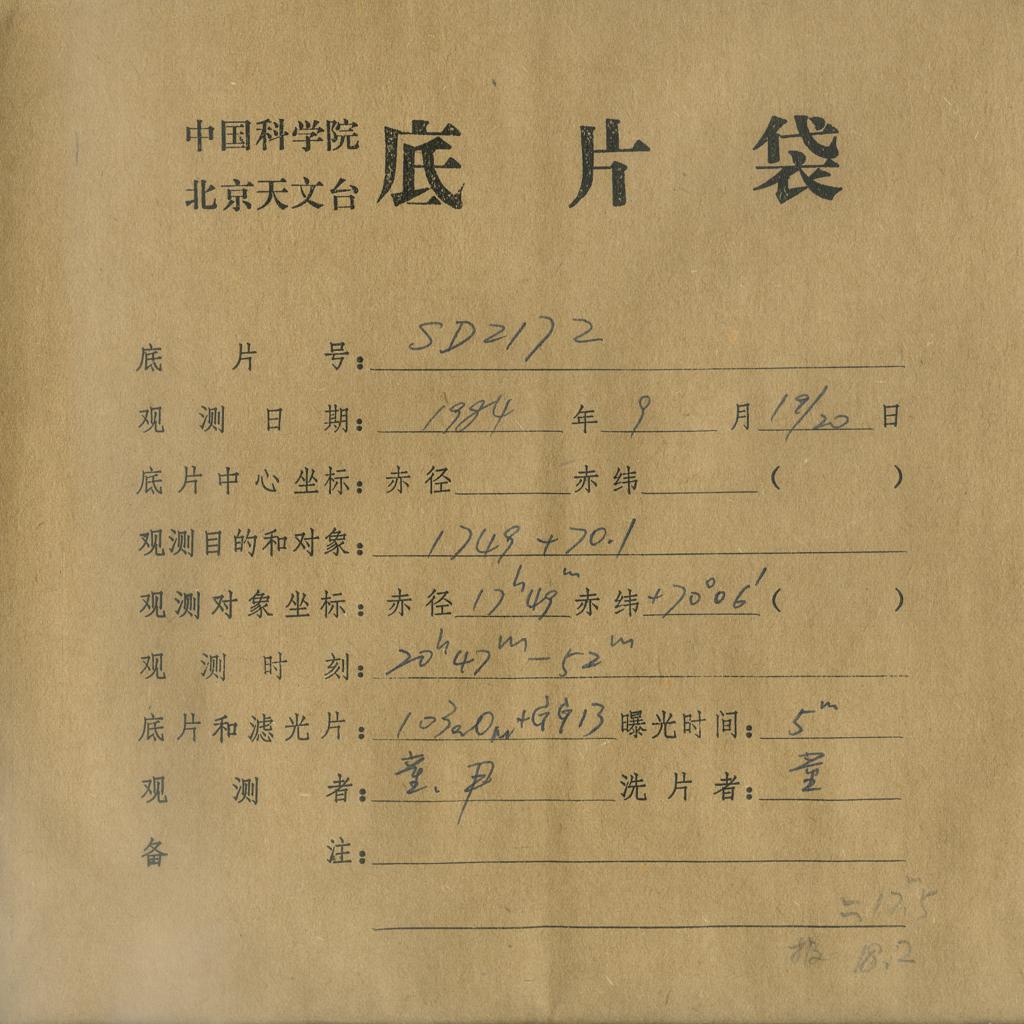 中国科学院
北京天文台 底片袋
底片号：SD2172
观测日期：1984年9月19/20日
底片中心坐标：赤径 赤纬 ( )
观测目的和对象：1749+70.1
观测对象坐标：赤径17h49m赤纬+70°06′( )
观测时刻：20h47m-52m
底片和滤光片：103aO+GG13 曝光时间：5m
观测者：童.尹 洗片者：童
备注：
17.5
18.2